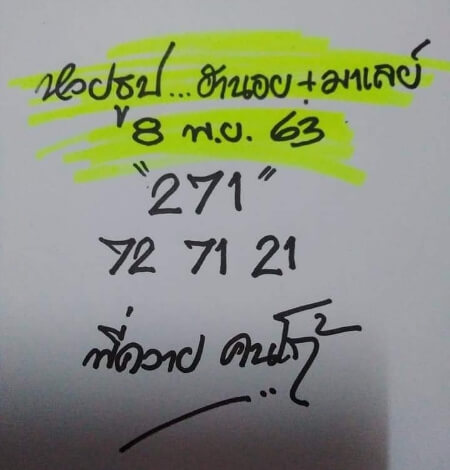 หวยธูป...ฮานอย+มาเลย์
8 พ.ย. 63
"271"
72 71 21
พี่ควาย คนโก้